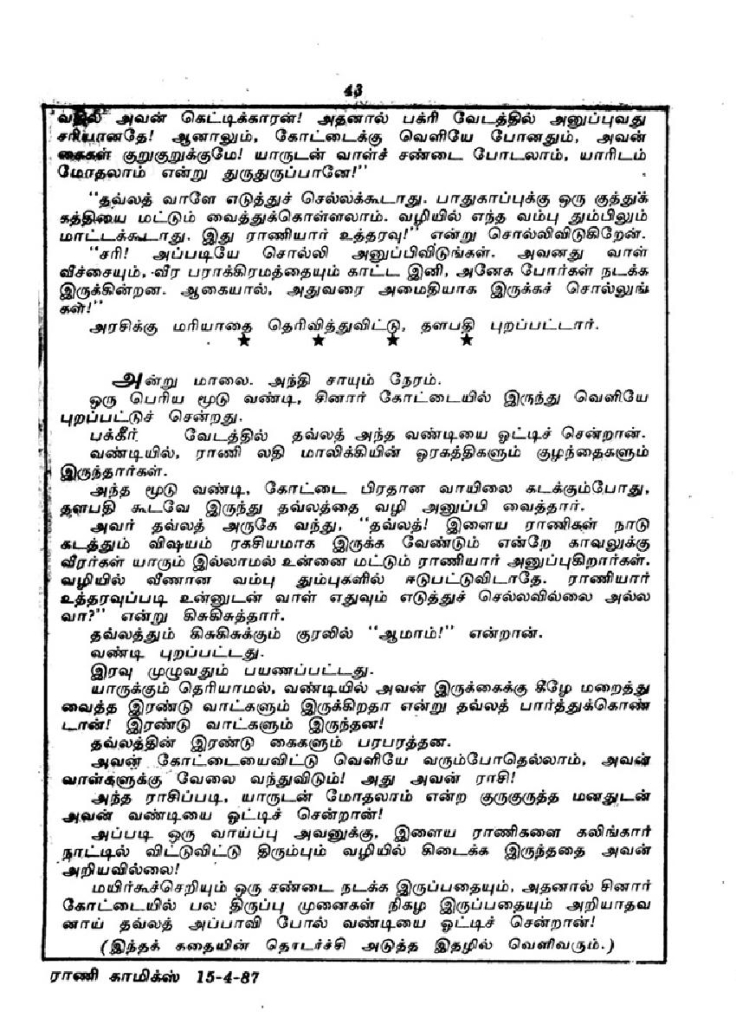 43
வதில் அவன் கெட்டிக்காரன்! அதனால் பக்ரி வேடத்தில் அனுப்புவது
சரியானதே! ஆனாலும், கோட்டைக்கு வெளியே போனதும், அவன்
கைகள் குறுகுறுக்குமே! யாருடன் வாள்ச் சண்டை போடலாம், யாரிடம்
மோதலாம் என்று துருதுருப்பானே!"
"தவ்லத் வாளே எடுத்துச் செல்லக்கூடாது. பாதுகாப்புக்கு ஒரு குத்துக்
கத்தியை மட்டும் வைத்துக்கொள்ளலாம். வழியில் எந்த வம்பு தும்பிலும்
மாட்டக்கூடாது. இது ராணியார் உத்தரவு!" என்று சொல்லிவிடுகிறேன்.
"சரி! அப்படியே சொல்லி அனுப்பிவிடுங்கள். அவனது வாள்
வீச்சையும், வீர பராக்கிரமத்தையும் காட்ட இனி, அனேக போர்கள் நடக்க
இருக்கின்றன. ஆகையால், அதுவரை அமைதியாக இருக்கச் சொல்லுங்
கள்!"
அரசிக்கு மரியாதை தெரிவித்துவிட்டு, தளபதி புறப்பட்டார்.
★ ★ ★ ★
அன்று மாலை. அந்தி சாயும் நேரம்.
ஒரு பெரிய மூடு வண்டி, சினார் கோட்டையில் இருந்து வெளியே
புறப்பட்டுச் சென்றது.
பக்கீர் வேடத்தில் தவ்லத் அந்த வண்டியை ஓட்டிச் சென்றான்.
வண்டியில், ராணி லதி மாலிக்கியின் ஓரகத்திகளும் குழந்தைகளும்
இருந்தார்கள்.
அந்த மூடு வண்டி, கோட்டை பிரதான வாயிலை கடக்கும்போது,
தளபதி கூடவே இருந்து தவ்லத்தை வழி அனுப்பி வைத்தார்.
அவர் தவ்லத் அருகே வந்து, "தவ்லத்! இளைய ராணிகள் நாடு
கடத்தும் விஷயம் ரகசியமாக இருக்க வேண்டும் என்றே காவலுக்கு
வீரர்கள் யாரும் இல்லாமல் உன்னை மட்டும் ராணியார் அனுப்புகிறார்கள்.
வழியில் வீணான வம்பு தும்புகளில் ஈடுபட்டுவிடாதே. ராணியார்
உத்தரவுப்படி உன்னுடன் வாள் எதுவும் எடுத்துச் செல்லவில்லை அல்ல
வா?" என்று கிசுகிசுத்தார்.
தவ்லத்தும் கிசுகிசுக்கும் குரலில் "ஆமாம்!" என்றான்.
வண்டி புறப்பட்டது.
இரவு முழுவதும் பயணப்பட்டது.
யாருக்கும் தெரியாமல், வண்டியில் அவன் இருக்கைக்கு கீழே மறைத்து
வைத்த இரண்டு வாட்களும் இருக்கிறதா என்று தவ்லத் பார்த்துக்கொண்
டான்! இரண்டு வாட்களும் இருந்தன!
தவ்லத்தின் இரண்டு கைகளும் பரபரத்தன.
அவன் கோட்டையைவிட்டு வெளியே வரும்போதெல்லாம், அவன்
வாள்களுக்கு வேலை வந்துவிடும்! அது அவன் ராசி!
அந்த ராசிப்படி, யாருடன் மோதலாம் என்ற குருகுருத்த மனதுடன்
அவன் வண்டியை ஓட்டிச் சென்றான்!
அப்படி ஒரு வாய்ப்பு அவனுக்கு, இளைய ராணிகளை கலிங்கார்
நாட்டில் விட்டுவிட்டு திரும்பும் வழியில் கிடைக்க இருந்ததை அவன்
அறியவில்லை!
மயிர்கூச்செறியும் ஒரு சண்டை நடக்க இருப்பதையும், அதனால் சினார்
கோட்டையில் பல திருப்பு முனைகள் நிகழ இருப்பதையும் அறியாதவ
னாய் தவ்லத் அப்பாவி போல் வண்டியை ஓட்டிச் சென்றான்!
(இந்தக் கதையின் தொடர்ச்சி அடுத்த இதழில் வெளிவரும்.)
ராணி காமிக்ஸ் 15-4-87